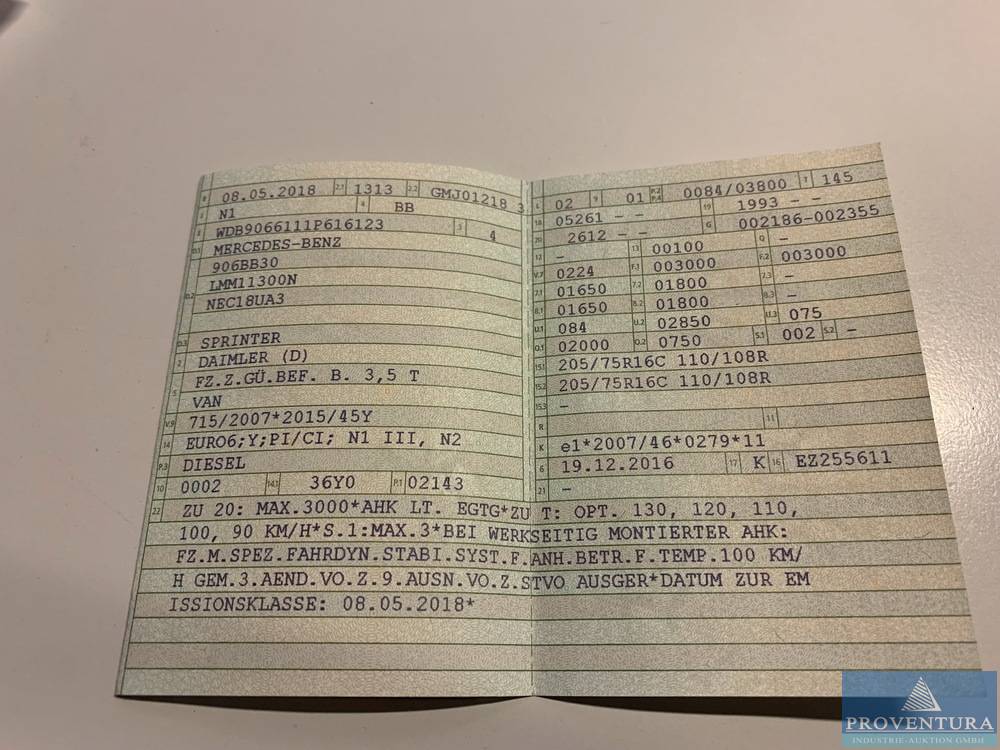 B 08.05.2018 2.1 1313 2.2 GMJ01218 3
J N1 4 BB
E WDB9066111P616123 3 4
D.1 MERCEDES-BENZ
906BB30
D.2 LMM11300N
NEC18UA3
D.3 SPRINTER
2 DAIMLER (D)
5 FZ.Z.GÜ.BEF. B. 3,5 T
VAN
V.9 715/2007*2015/45Y
14 EURO6;Y;PI/CI; N1 III, N2
P.3 DIESEL
10 0002 14.1 36Y0 P.1 02143
L 02 9 01 P.2 P.4 0084/03800 T 145
18 05261 - - 19 1993 - -
20 2612 - - G 002186-002355
12 - 13 00100 Q -
V.7 0224 F.1 003000 F.2 003000
7.1 01650 7.2 01800 7.3 -
8.1 01650 8.2 01800 8.3 -
U.1 084 U.2 02850 U.3 075
O.1 02000 O.2 0750 S.1 002 S.2 -
15.1 205/75R16C 110/108R
15.2 205/75R16C 110/108R
15.3 -
R 11
K e1*2007/46*0279*11
6 19.12.2016 17 K 16 EZ255611
21 -
22 ZU 20: MAX.3000*AHK LT. EGTG*ZU T: OPT. 130, 120, 110,
100, 90 KM/H*S.1:MAX.3*BEI WERKSEITIG MONTIERTER AHK:
FZ.M.SPEZ.FAHRDYN.STABI.SYST.F.ANH.BETR.F.TEMP.100 KM/
H GEM.3.AEND.VO.Z.9.AUSN.VO.Z.STVO AUSGER*DATUM ZUR EM
ISSIONSKLASSE: 08.05.2018*
PROVENTURA
INDUSTRIE-AUKTION GMBH